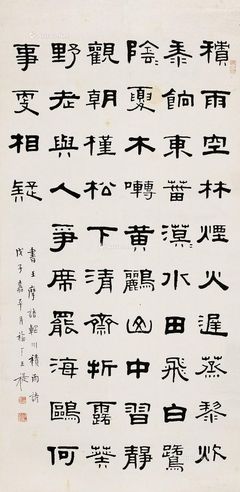 積雨空林煙火遲蒸藜炊
黍餉東菑漠〻水田飛白鷺
陰〻夏木囀黃鸝山中習靜
觀朝槿松下清齋折露葵
野老與人爭席罷海鷗何
事更相疑
書王摩詰輞川積雨詩
戊子嘉平月福厂王禔